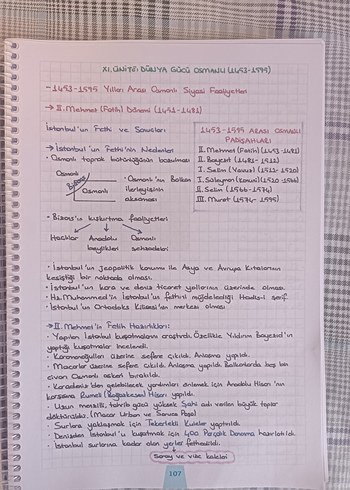 XI.ÜNİTE: DÜNYA GÜCÜ OSMANLI (1453-1595)
-1453-1595 Yılları Arası Osmanlı Siyasi Faaliyetleri
→ II. Mehmet (Fatih) Dönemi (1451-1481)
İstanbul'un Fethi ve Sonuçları
→ İstanbul'un Fethi'nin Nedenleri
• Osmanlı toprak bütünlüğünün bozulması
Osmanlı
Bizans
Osmanlı
• Osmanlı'nın Balkan
ilerleyişinin
aksaması
1453-1595 ARASI OSMANLI
PADİŞAHLARI
II. Mehmet (Fatih) (1451-1481)
II. Bayezit (1481-1512)
I. Selim (Yavuz) (1512-1520)
I. Süleyman (Kanuni) (1520-1566)
II. Selim (1566-1574)
III. Murat (1574-1595)
• Bizans'ın kışkırtma faaliyetleri
Haçlılar Anadolu Osmanlı
beylikleri şehzadeleri
• İstanbul'un jeopolitik konumu ile Asya ve Avrupa kıtalarının
kesiştiği bir noktada olması.
• İstanbul'un kara ve deniz ticaret yollarının üzerinde olması.
• Hz. Muhammed'in İstanbul'un fethini müjdelediği Hadis-i şerif
• İstanbul'un Ortodoks Kilisesi'nin merkezi olması
→ II. Mehmet'in Fetih Hazırlıkları:
• Yapılan İstanbul kuşatmalarını araştırdı. Özellikle Yıldırım Bayezid'un
yaptığı kuşatmalar incelendi.
• Karamanoğulları üzerine sefere çıkıldı. Anlaşma yapıldı.
• Macarlar üzerine sefere çıkıldı. Anlaşma yapıldı. Balkanlarda
civarı Osmanlı askeri bırakıldı.
• Karadeniz'den gelebilecek yardımları önlemek için Anadolu Hisarı'nın
karşısına Rumeli (Boğazkesen) Hisarı yapıldı.
• Uzun menzilli, tahrip gücü yüksek Şahi adı verilen büyük toplar
döktürüldü. (Macar Urban ve Saruca Paşa)
• Surlara yaklaşmak için Tekerlekli Kuleler yaptırıldı
• Denizden İstanbul'u kuşatmak için 400 Parçalık Donanma hazırlatıldı.
• İstanbul surlarına kadar olan yerler fethedildi.
Silivri ve Vize kaleleri
107